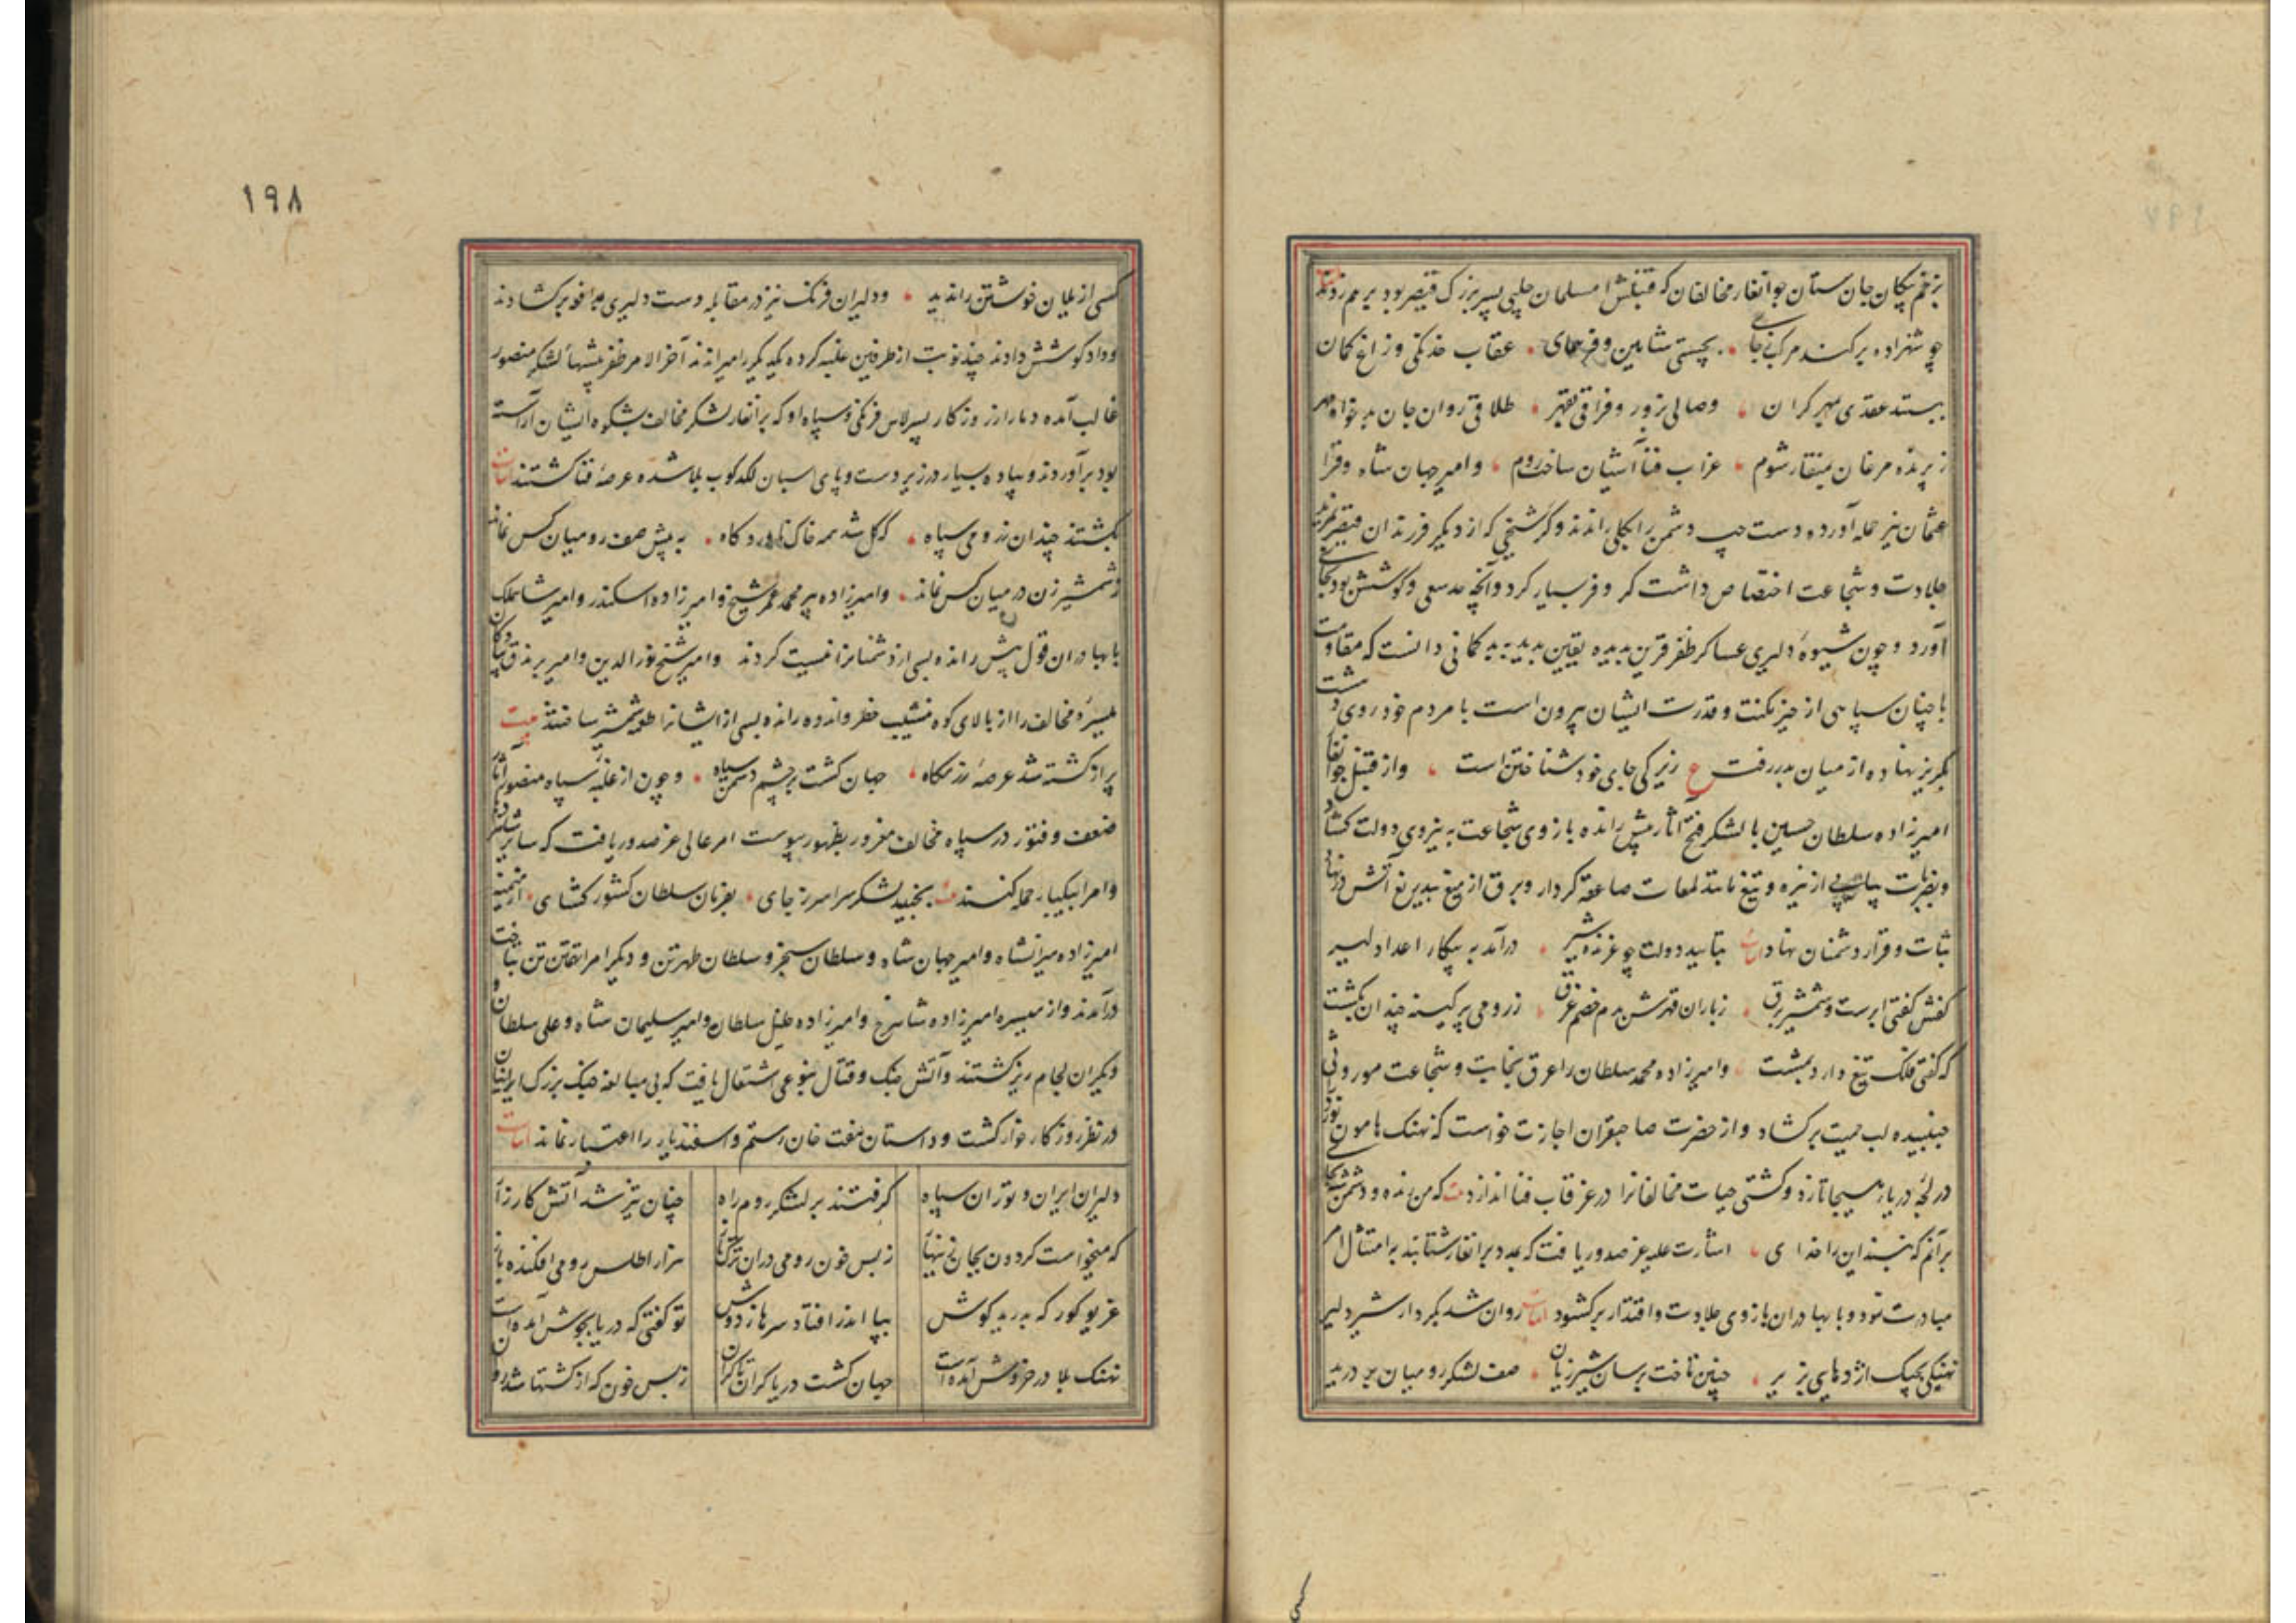 بزخم پیکان جان ستان جوانغار مخالفان که قنبلش مسلمان چلپی پسر بزرک قیصر بود برهم زدند
چو شهزاده برکند مرکب ز جای بچستی شاهین و فر همای عقاب خدنکی و زاغ کمان
ببستند عقدی بمهر کران وصالی بزور و فراقی بقهر طلاقی روان جان بدخواه مهر
ز پرنده مرغان بمنقار شوم عراب فنا آشیان ساخت روم و امیر جهان شاه و قرا
عثمان نیز حمله آورده دست چپ دشمن را بکلی راندند و کرشجی که از دیکر فرزندان قیصر بمزید
جلادت و شجاعت اختصاص داشت کر و فر بسیار کرد و آنچه حد سعی و کوشش بود بجای
آورد و چون شیوهٔ دلیری عساکر ظفر قرین بدیده یقین بدید بی کمانی دانست که مقاومت
با چنان سپاهی از حیز مکنت و قدرت ایشان بیرون است با مردم خود روی دشت
بکریز نهاده از میان بدر رفت ع زیرکی جای خود شناختن است و از قنبل جوانغار
امیرزاده سلطان حسین با لشکر فتح آثار پیش رانده بازوی شجاعت به نیروی دولت کشاد
و بضربات پیاپی از نیزه و تیغ مانند لمعات صاعقه کردار و برق از میغ بیدریغ آتش در نهاد
ثبات و قرار دشمنان نهاد ابیات بتایید دولت چو غرنده شیر درآمد به پیکار اعدا دلیر
کفش کفتی ابرست و شمشیر برق ز باران قهرش بدم خصم غرق ز رومی پر کینه چندان بکشت
که کفتی فلک تیغ دارد بمشت و امیرزاده محمد سلطان را عرق نجابت و شجاعت موروثی
جنبیده لب حمیت برکشاد و از حضرت صاحبقران اجازت خواست که نهنک هامون نورد
در لجهٔ دریای هیجا تازد و کشتی حیات مخالفانرا در غرقاب فنا اندازد بیت که من بنده و دشمن بجای
برآنم که نپسندد این را خدای اشارت علیه عز صدور یافت که بمدد برانغار شتابند بر امتثال امر
مبادرت نمود و با بهادران بازوی جلادت و اقتدار برکشود ابیات روان شد بکردار شیر دلیر
نهنکی بچنک اژدهایی بزیر چنین تاخت برسان شیر ژیان صف لشکر رومیان بر درید
١٩٨
کسی از یلان خوشتن را ندید و دلیران فرنک نیز در مقابله دست دلیری برکشادند
و داد کوشش دادند چند نوبت از طرفین غلبه کرده یکدیکر را میراندند آخر الامر ظفر پیشهاء لشکر منصور
غالب آمده دمار از روزکار پسر لاس فرنکی و سپاه او که برانغار لشکر مخالف بشکوه ایشان آراسته
بود برآوردند و پیاده بسیار در زیر دست و پای اسبان لکدکوب بلا شده عرضهٔ فنا کشتند ابیات
بکشتند چندان ز رومی سپاه که کل شد همه خاک ناوردکاه به پیش صف رومیان کس نماند
و شمشیر زن در میان کس نماند و امیرزاده پیر محمد عمر شیخ و امیرزاده اسکندر و امیر شاهملک
با بهادران قول پیش رانده بسی از دشمنانرا نیست کردند و امیر شیخ نورالدین و امیر برندق
میسرهٔ مخالف را از بالای کوه بنشیب خطر و اندوه رانده بسی از ایشانرا طعمه شمشیر ساختند بیت
پر از کشته شد عرصهٔ رزمکاه جهان کشت بر چشم دشمن سیاه و چون از غلبهٔ سپاه منصور آثار
ضعف و فتور در سپاه مخالف مغرور بظهور پیوست امر عالی عز صدور یافت که سایر
و امرا بیکبار حمله کنند بجنبید لشکر سراسر ز جای بفرمان سلطان کشور کشای از میمنه
امیرزاده میرانشاه و امیر جهان شاه و سلطان سنجر و سلطان طهرتن و دیکر امرا تن بتاخت
درآمدند و از میسره امیرزاده شاهرخ و امیرزاده خلیل سلطان و امیر سلیمان شاه و علی سلطان و
دیکران لجام ریز کشتند و آتش جنک و قتال بنوعی اشتعال یافت که بی مبالغه جنک بزرک ایرانیان
در نظر روزکار خوار کشت و داستان هفت خان رستم و اسفندیار را اعتبار نماند ابیات
دلیران ایران و توران سپاه کرفتند بر لشکر روم راه چنان تیز شد آتش کارزار
که میخواست کردون بجان زینهار ز بس خون رومی دران ترکتاز هزار اطلس رومی افکنده باز
غریو کور که بدرید کوش بپا اندر افتاد سرها ز دوش تو کفتی که دریا بجوش آمده است
نهنک بلا در خروش آمده است جهان کشت دریا کران تا کران ز بس خون که از کشتها شد روان